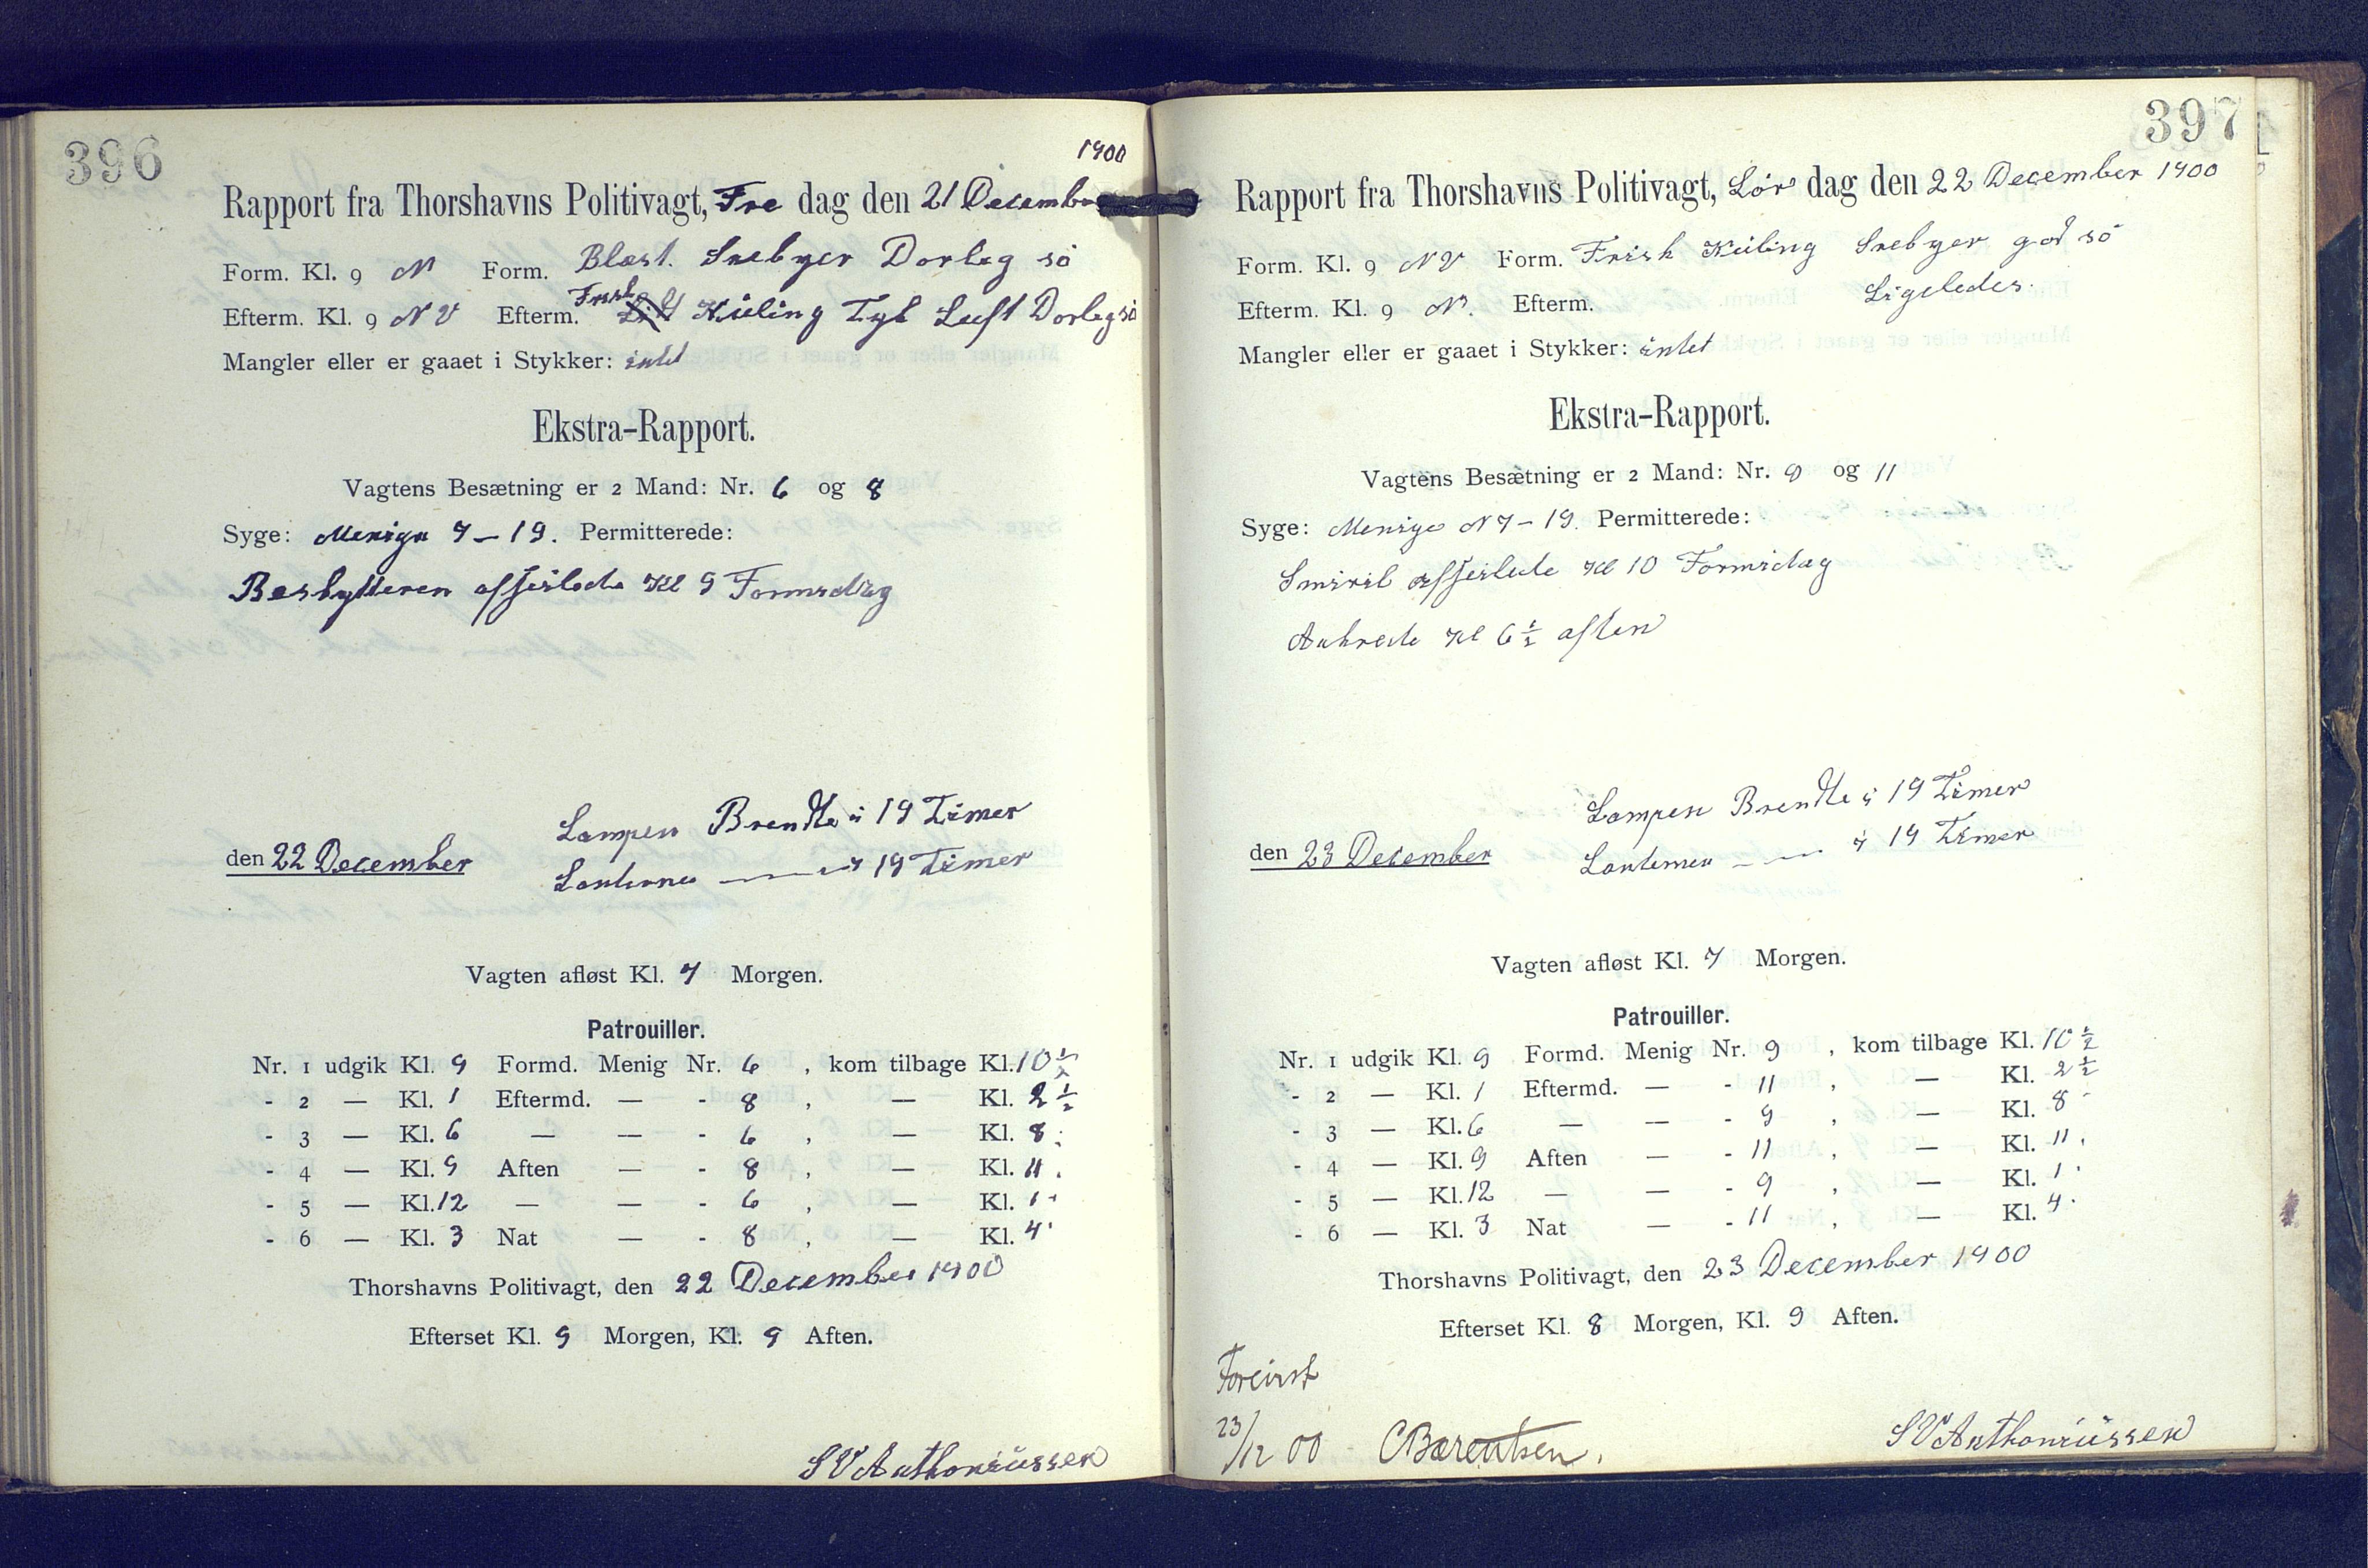 396
1900
Rapport fra Thorshavns Politivagt, Fre dag den 21 December
Form. Kl. 9 N Form. Blæst. Snebyer Dorleg sö
Efterm. Kl. 9 NV Efterm. Frisk Kuling Tyk Luft Dorleg sö
Mangler eller er gaaet i Stykker: intet
Ekstra-Rapport.
Vagtens Besætning er 2 Mand: Nr. 6 og 8
Syge: Menige 7 – 19. Permitterede:
Beskytteren afseilede Kl 9 Formidag
Lampen Brendte i 19 Timer
den 22 December
Lanterne — — i 19 Timer
Vagten afløst Kl. 7 Morgen.
Patrouiller.
Nr. 1 udgik Kl. 9 Formd. Menig Nr. 6 , kom tilbage Kl. 10 ½
- 2 — Kl. 1 Eftermd. — - 8 , — Kl. 2 ½
- 3 — Kl. 6 — — - 6 , — Kl. 8 .
- 4 — Kl. 9 Aften — - 8 , — Kl. 11 .
- 5 — Kl. 12 — — - 6 , — Kl. 1 .
- 6 — Kl. 3 Nat — - 8 , — Kl. 4 .
Thorshavns Politivagt, den 22 December 1900
Efterset Kl. 9 Morgen, Kl. 9 Aften.
SVAnthoniussen
397
Rapport fra Thorshavns Politivagt, Lör dag den 22 December 1900
Form. Kl. 9 NV Form. Frisk Kuling Snebyer god sö
Efterm. Kl. 9 N. Efterm. Ligeledes.
Mangler eller er gaaet i Stykker: intet
Ekstra-Rapport.
Vagtens Besætning er 2 Mand: Nr. 9 og 11
Syge: Menige N 7 – 19. Permitterede:
Smiril afseilede Kl 10 Formidag
Ankrede Kl 6 ½ aften
Lampen Brendte i 19 Timer
den 23 December
Lanternen — — i 19 Timer
Vagten afløst Kl. 7 Morgen.
Patrouiller.
Nr. 1 udgik Kl. 9 Formd. Menig Nr. 9 , kom tilbage Kl. 10 ½
- 2 — Kl. 1 Eftermd. — - 11 , — Kl. 2 ½
- 3 — Kl. 6 — — - 9 , — Kl. 8 -
- 4 — Kl. 9 Aften — - 11 , — Kl. 11 .
- 5 — Kl. 12 — — - 9 , — Kl. 1 .
- 6 — Kl. 3 Nat — - 11 , — Kl. 4 .
Thorshavns Politivagt, den 23 December 1900
Efterset Kl. 8 Morgen, Kl. 9 Aften.
Forevist
23/12 00 CBærentsen.
SVAnthoniussen